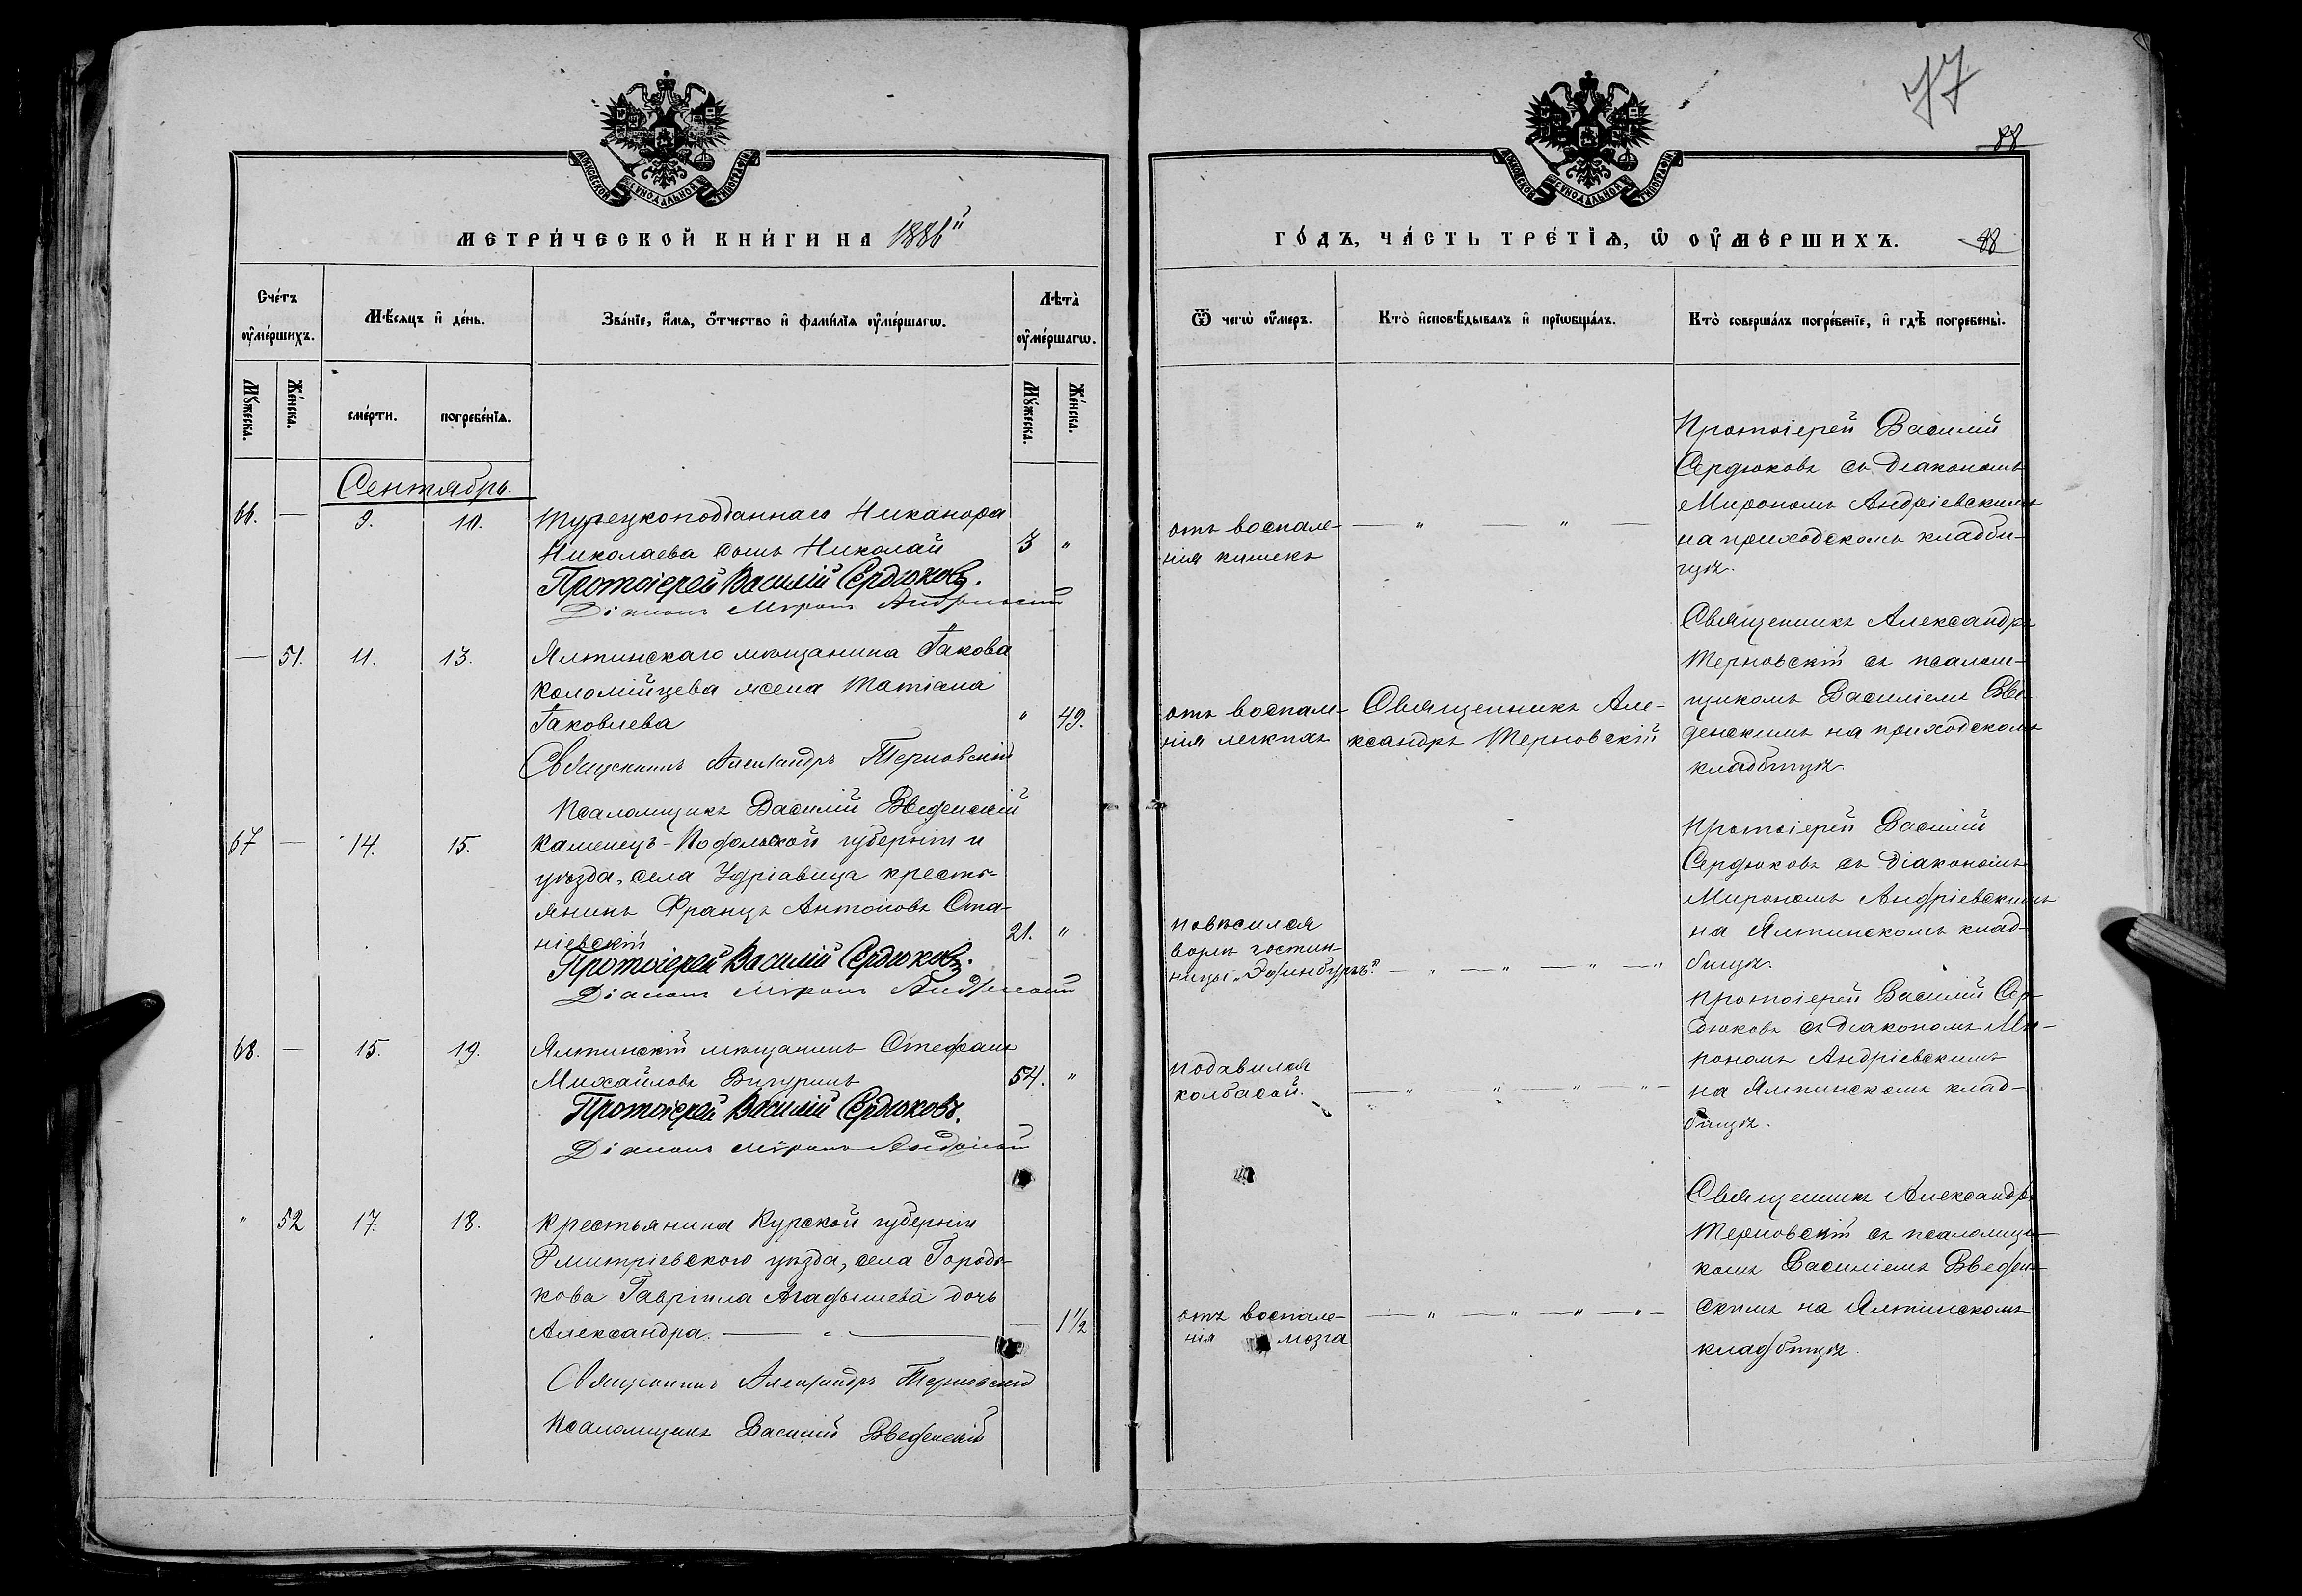 77
88
МОСКОВСКОЙ СѴНОДАЛЬНОЙ ТИПОГРАФІИ
МОСКОВСКОЙ СѴНОДАЛЬНОЙ ТИПОГРАФІИ
МЕТРИ́ЧЕСКОЙ КНИ́ГИ НА 1886й
ГО́ДЪ, ЧА́СТЬ ТРЕ́ТІѦ, Ѽ ОУ҆МЕ́РШИХЪ. 88
Сче́тъ оу҆ме́ршихъ.
Мꙋ́жеска.
Же́нска.
Мѣ́сяцъ и҆ де́нь.
сме́рти.
погребе́нїѧ.
Зва́нїе, и҆́мѧ, ѻ҆́тчество и҆ фами́лїѧ оу҆ме́ршагѡ.
Лѣта̀ оу҆ме́ршагѡ.
Мꙋ́жеска.
Же́нска.
Ѿ чегѡ̀ оу҆́меръ.
Кто̀ и҆сповѣ́дывалъ и҆ прїѡбща́лъ.
Кто̀ соверша́лъ погребе́нїе, и҆ гдѣ̀ погребены̀.
Сентябрь.
66. — 9. 10.
Турецкоподданнаго Никанора
Николаева сынъ Николай 3 "
Протоіерей Василій Сердюковъ.
Діаконъ Миронъ Андріевскій
отъ воспале-
нія кишекъ
— " — " —
Протоіерей Василій
Сердюковъ съ діакономъ
Мирономъ Андріевскимъ
на приходскомъ кладби-
щѣ.
— 51. 11. 13.
Ялтинскаго мѣщанина Іакова
Коломійцева жена Татіана
Іаковлева " 49.
Священникъ Александръ Терновскій
Псаломщикъ Василій Введенскій
отъ воспале-
нія легкихъ
Священникъ Але-
ксандръ Терновскій
Священникъ Александръ
Терновскій съ псалом-
щикомъ Василіемъ Вве-
денскимъ на приходскомъ
кладбищѣ.
67 — 14. 15.
Каменецъ-Подольской губерніи и
уѣзда, села крестъ-
янинъ Францъ Антоновъ Ста-
ніевскій 21. "
Протоіерей Василій Сердюковъ.
Діаконъ Миронъ Андріевскій
повѣсился
возлѣ гостин-
ницы „Эдинбургъ".
— " — " — " — "
Протоіерей Василій
Сердюковъ съ діакономъ
Мирономъ Андріевскимъ
на Ялтинскомъ клад-
бищѣ.
68. — 15. 19.
Ялтинскій мѣщанинъ Стефанъ
Михайловъ 54. "
Протоіерей Василій Сердюковъ.
Діаконъ Миронъ Андріевскій
подавился
колбасой.
— " — " — " — " —
Протоіерей Василій Сер-
дюковъ съ діакономъ Ми-
рономъ Андріевскимъ
на Ялтинскомъ клад-
бищѣ.
" 52 17. 18.
Крестьянина Курской губерніи
Дмитріевского уѣзда, села Городь-
кова Гавріила дочь
Александра. — " — — 1 1/2
Священникъ Александръ Терновскій
Псаломщикъ Василій Введенскій
отъ воспале-
нія мозга
— " — " — " — " —
Священникъ Александръ
Терновскій съ псаломщи-
комъ Василіемъ Введен-
скимъ на Ялтинскомъ
кладбищѣ.